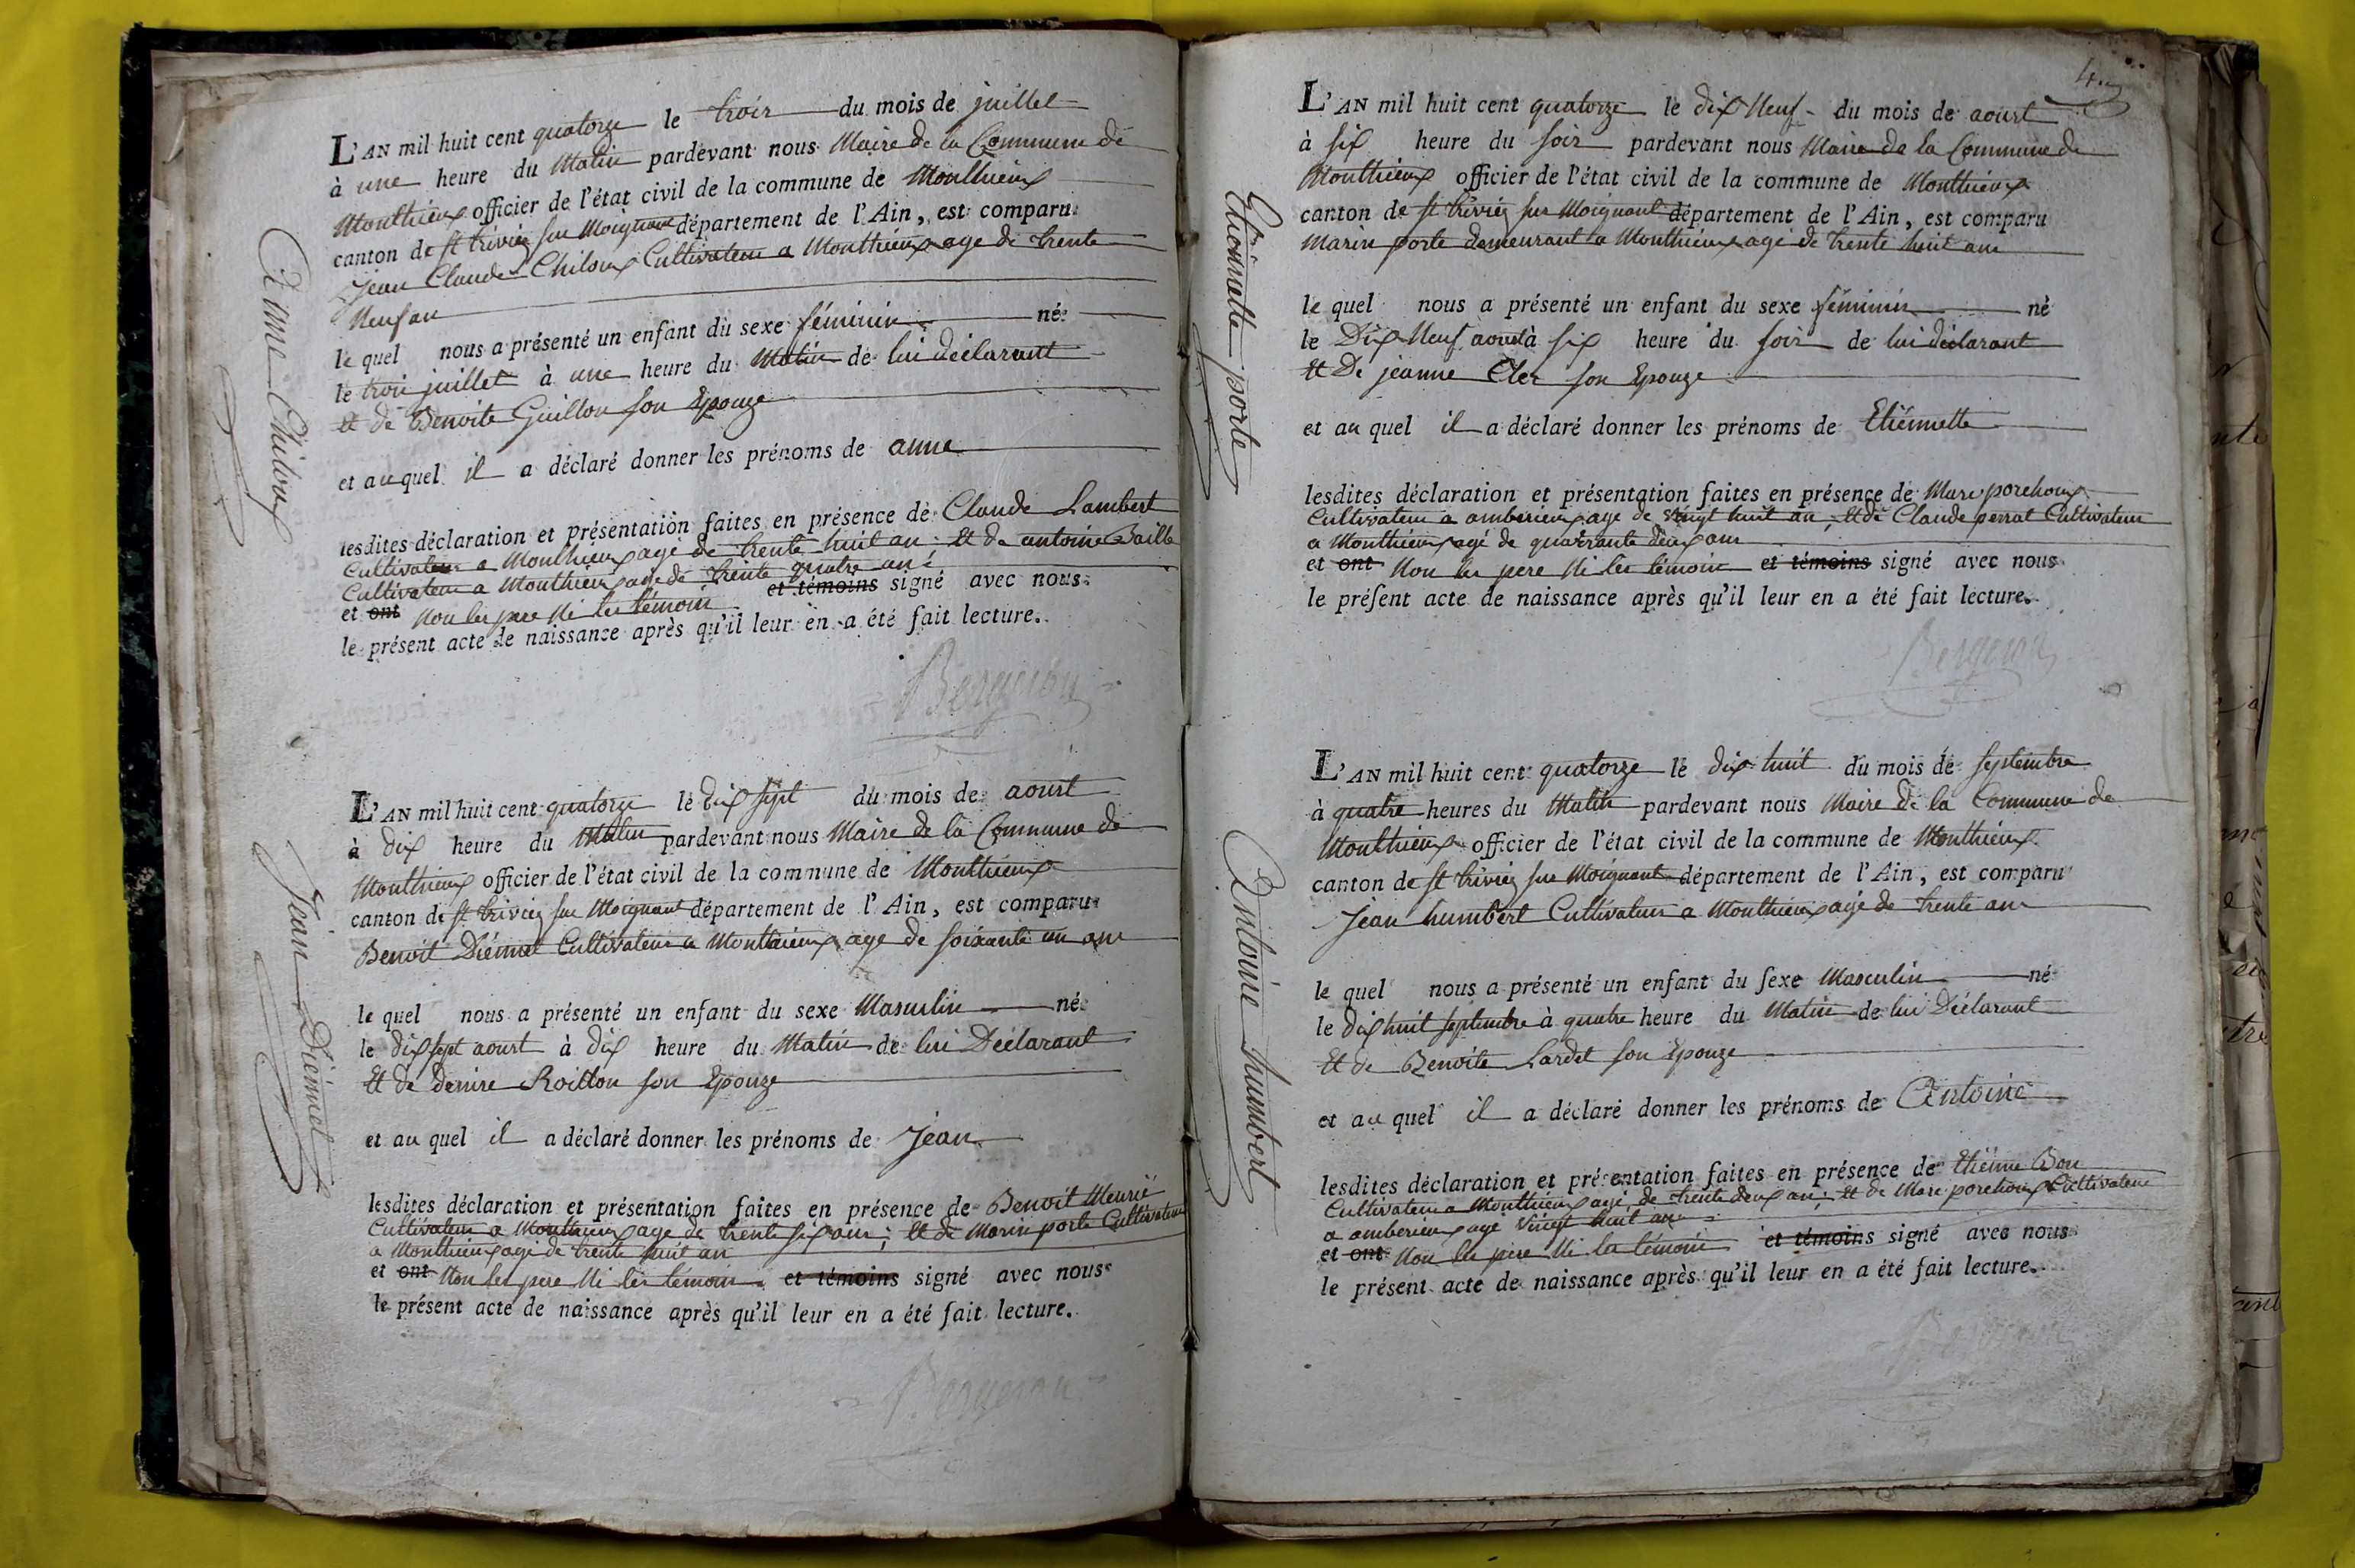 Anne Chiloux
L'AN mil huit cent quatorze le trois du mois de juillet
à une heure du Matin pardevant nous Maire de la Commune de
Monthieux officier de l'état civil de la commune de Monthieux
canton de st triviez sur Moignant département de l'Ain, est comparu
Jean Claude Chiloux Cultivateur a Monthieux age de trente
Neuf an
le quel nous a présenté un enfant du sexe féminin né
le trois juillet à une heure du Matin de lui déclarant
et de Benoite Guillon son Epouze
et au quel il a déclaré donner les prénoms de anne
lesdites déclaration et présentation faites en présence de Claude Lambert
Cultivateur a Monthieux agé de trente huit an : Et de antoine Baille
Cultivateur a Monthieux agé de trente quatre an
et ont Non les pere Ni les témoin et témoins signé avec nous
le présent acte de naissance après qu'il leur en a été fait lecture.
Bergeron
Jean Diémet
L'AN mil huit cent quatorze le dix sept du mois de aoust
à dix heure du Matin pardevant nous Maire de la Commune de
Monthieux officier de l'état civil de la commune de Monthieux
canton de st triviez sur Moignant département de l'Ain, est comparu
Benoit Diémet Cultivateur a Monthieux age de soixante un ans
le quel nous a présenté un enfant du sexe Masculin né
le dix sept aoust à dix heure du Matin de lui Déclarant
Et de denise Roitton son Epouze
et au quel il a déclaré donner les prénoms de Jean
lesdites déclaration et présentation faites en présence de Benoit Meurié
Cultivateur a Monthieux age de trente six ans ; Et de Marin porte Cultivateur
a Monthieux agé de trente huit an
et ont Non les pere Ni les témoin et témoins signé avec nous
le présent acte de naissance après qu'il leur en a été fait lecture.
Bergeron
Etiennette porte
L'AN mil huit cent quatorze le dix Neuf du mois de aoust
à six heure du soir pardevant nous Maire de la Commune de
Monthieux officier de l'état civil de la commune de Monthieux
canton de st triviez sur Moignant département de l'Ain, est comparu
Marin porte demeurant a Monthieux agé de trente huit ans
le quel nous a présenté un enfant du sexe féminin né
le Dix Neuf aoust à six heure du soir de lui déclarant
Et De jeanne Cler son Epouze
et au quel il a déclaré donner les prénoms de Etiénnette
lesdites déclaration et présentation faites en présence de Marc porchoux
Cultivateur a amberieux age de vingt huit an ; Et de Claude perrat Cultivateur
a Monthieux agé de quarrante deux ans
et ont Non les pere Ni les témoin et témoins signé avec nous
le présent acte de naissance après qu'il leur en a été fait lecture.
Bergeron
Antoine humbert
L'AN mil huit cent quatorze le dix huit du mois de septembre
à quatre heures du Matin pardevant nous Maire de la Commune de
Monthieux officier de l'état civil de la commune de Monthieux
canton de st triviez sur Moignant département de l'Ain, est comparu
Jean humbert Cultivateur a Monthieux agé de trente ans
le quel nous a présenté un enfant du sexe Masculin né
le dix huit septembre à quatre heure du Matin de lui Déclarant
Et de Benoite Lardet son Epouze
et au quel il a déclaré donner les prénoms de Antoine
lesdites déclaration et présentation faites en présence de Etiénne Bon
Cultivateur a Monthieux agé de trente deux an ; Et de Marc porchoux Cultivateur
a amberieux age vingt huit an
et ont Non les pere Ni les témoin et témoins signé avec nous
le présent acte de naissance après qu'il leur en a été fait lecture.
Bergeron